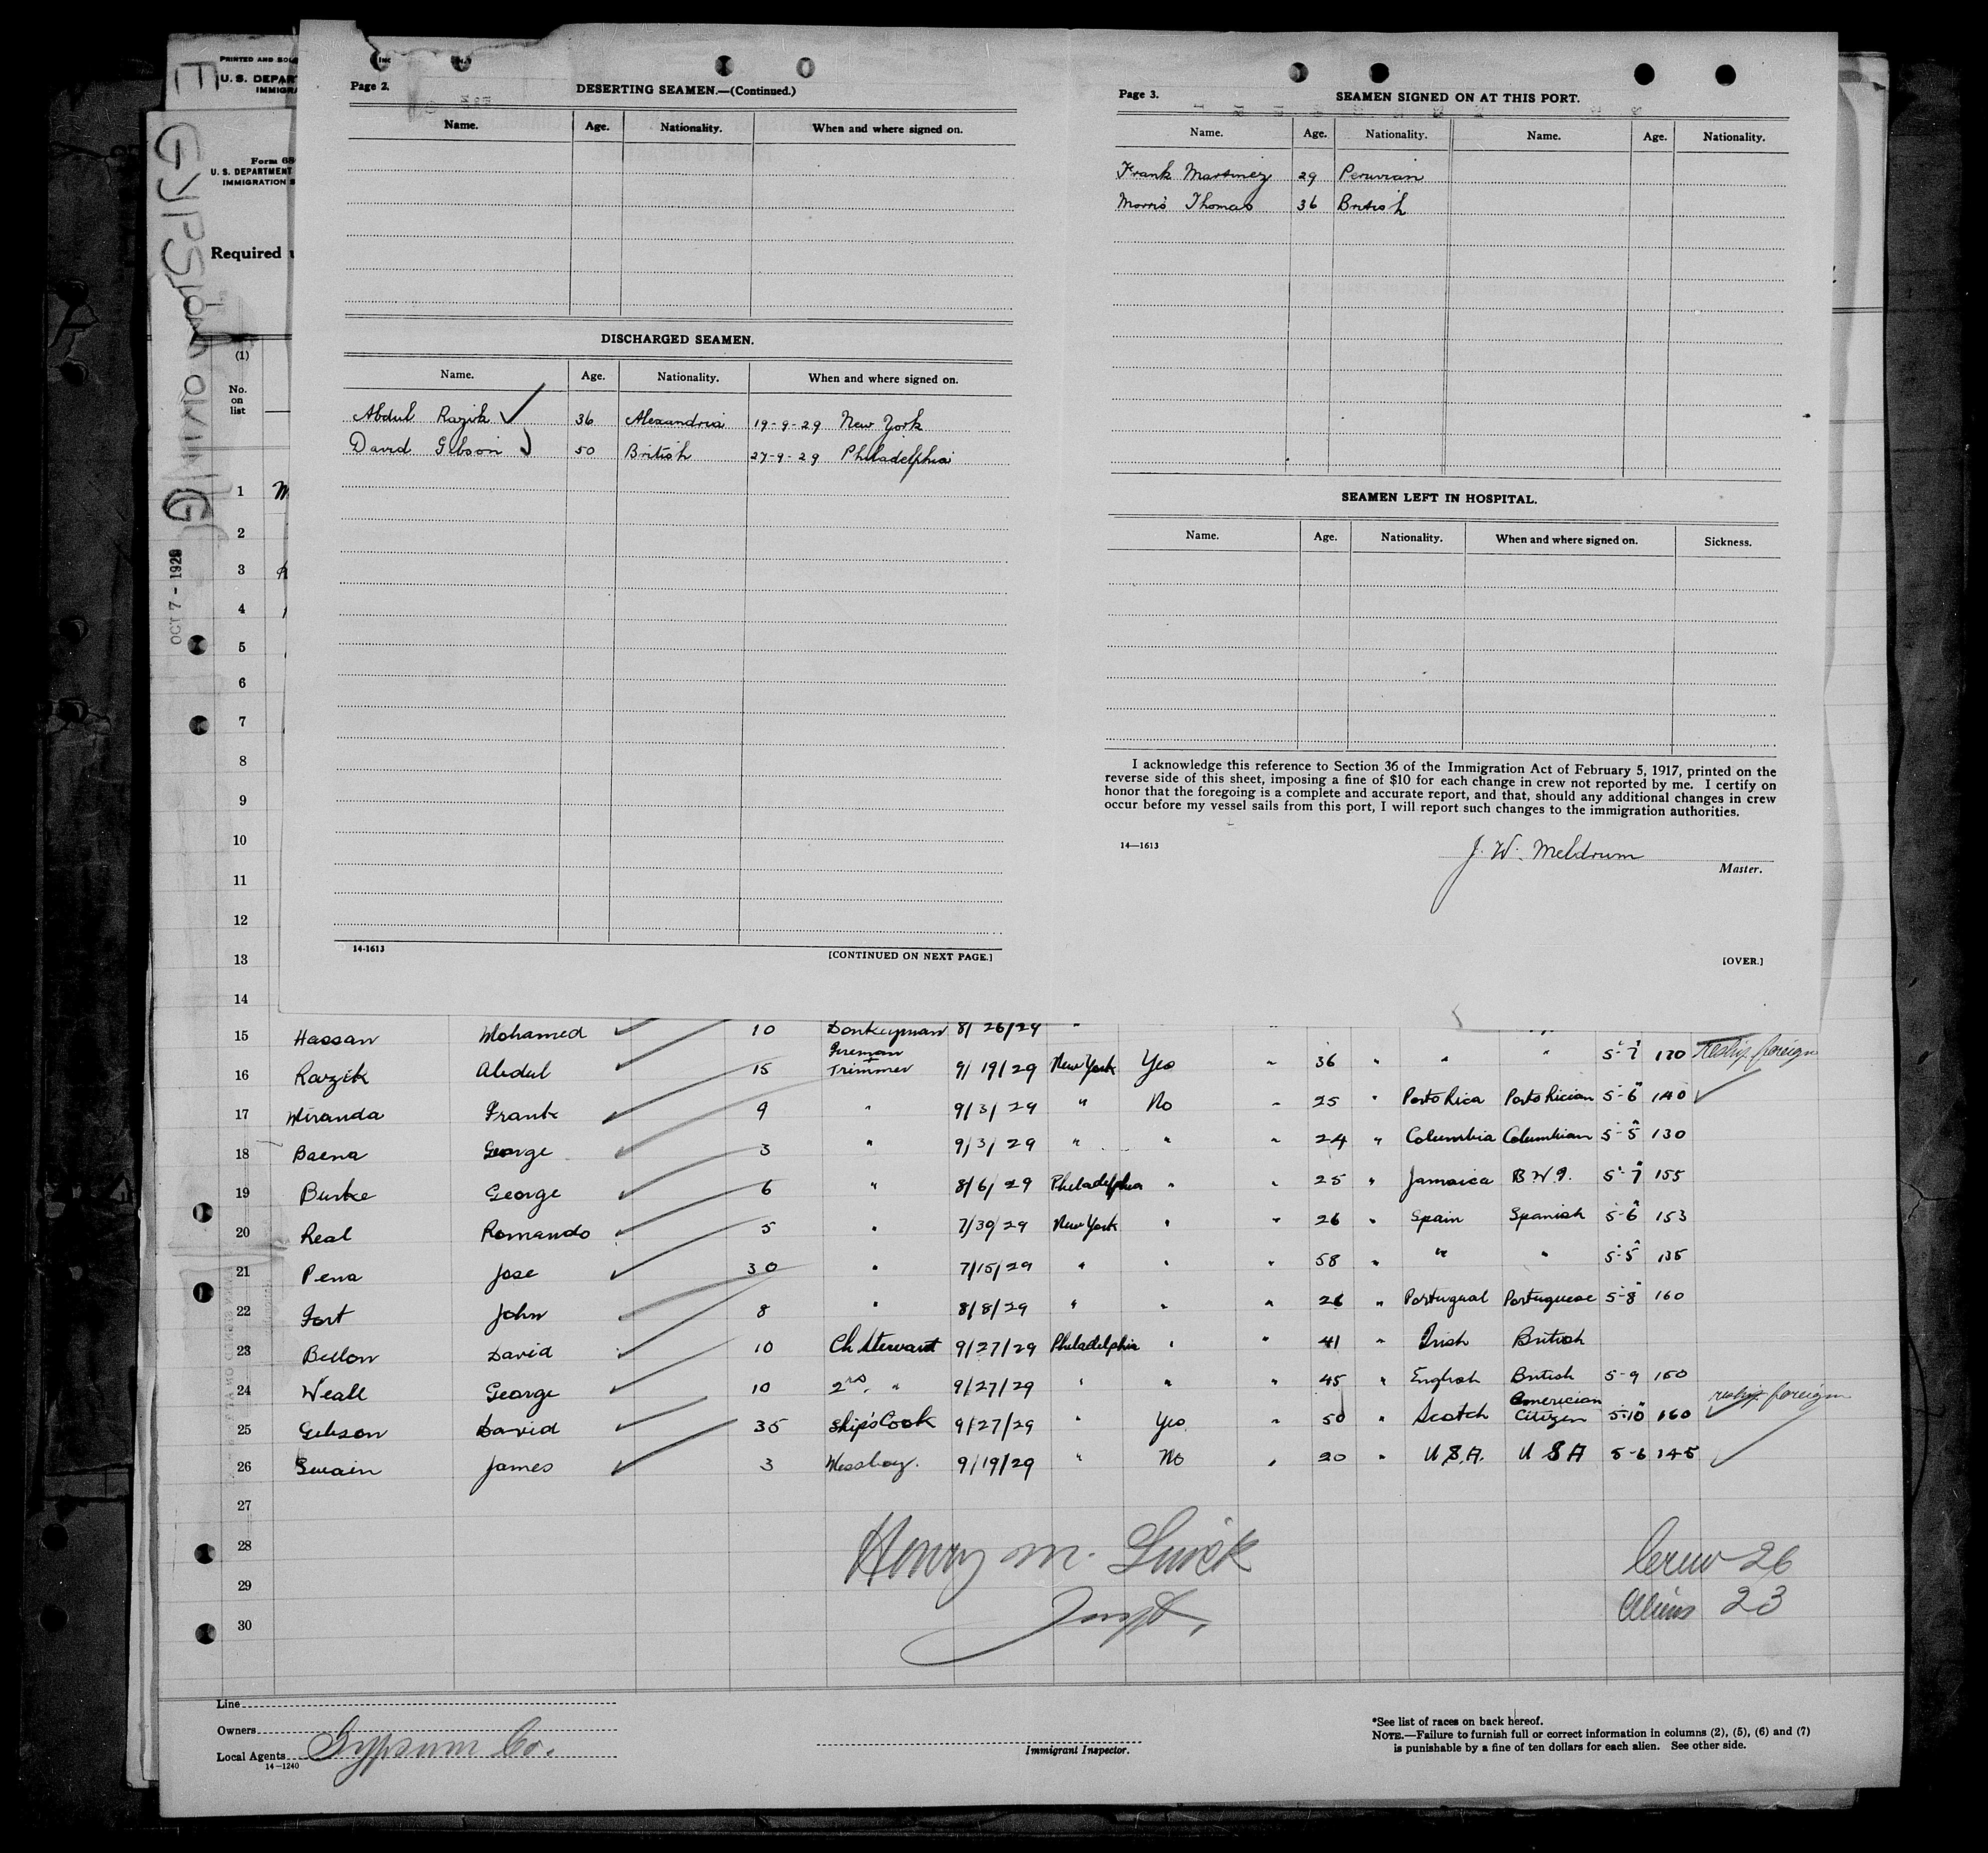 PRINTED AND SOL
U. S. DEPAR
IMMIGRA
Form 68
U. S. DEPARTMENT
IMMIGRATION S
Required
OCT 7 - 1929
(1)
No.
on
list
Page 2.
DESERTING SEAMEN.—(Continued.)
Name. Age. Nationality. When and where signed on.
DISCHARGED SEAMEN.
Name. Age. Nationality. When and where signed on.
Abdul Razik 36 Alexandria 19-9-29 New York
David Gibson 50 British 27-9-29 Philadelphia
14-1613
[CONTINUED ON NEXT PAGE.]
Page 3.
SEAMEN SIGNED ON AT THIS PORT.
Name. Age. Nationality. Name. Age. Nationality.
Frank Martinez 29 Peruvian
Morris Thomas 36 British
SEAMEN LEFT IN HOSPITAL.
Name. Age. Nationality. When and where signed on. Sickness.
I acknowledge this reference to Section 36 of the Immigration Act of February 5, 1917, printed on the
reverse side of this sheet, imposing a fine of $10 for each change in crew not reported by me. I certify on
honor that the foregoing is a complete and accurate report, and that, should any additional changes in crew
occur before my vessel sails from this port, I will report such changes to the immigration authorities.
14—1613
J. W. Meldrum
Master.
[OVER.]
1
2
3
4
5
6
7
8
9
10
11
12
13
14
15 Hassan Mohamed 10 Donkeyman 8/26/29 "
16 Razik Abdul 15 Fireman + Trimmer 9/19/29 New York Yes " 36 " " " 5-7 170 reship foreign
17 Miranda Frank 9 " 9/3/29 " No " 25 " Porto Rica Porto Rician 5-6 140
18 Baena George 3 " 9/3/29 " " " 24 " Columbia Columbian 5-5 130
19 Burke George 6 " 8/6/29 Philadelphia " " 25 " Jamaica B.W.I. 5-7 155
20 Real Romando 5 " 7/30/29 New York " " 26 " Spain Spanish 5-6 153
21 Pena Jose 30 " 7/15/29 " " " 58 " " " 5-5 135
22 Fort John 8 " 8/8/29 " " " 26 " Portugual Portuguese 5-8 160
23 David 10 Ch Steward 9/27/29 Philadelphia " " 41 " Irish British
24 Weall George 10 2nd " 9/27/29 " " " 45 " English British 5-9 150
25 Gibson David 35 Ship's Cook 9/27/29 " Yes " 50 " Scotch Americian Citizen 5-10 160 reship foreign
26 Swain James 3 Messboy. 9/19/29 " No " 20 " U.S.A. U S A 5-6 145
27
28
29
30
Henry M.
Insp.
Crew 26
Aliens 23
Line
Owners
Local Agents Gypsum Co.
14—1240
Immigrant Inspector.
*See list of races on back hereof.
NOTE.—Failure to furnish full or correct information in columns (2), (5), (6) and (7)
is punishable by a fine of ten dollars for each alien. See other side.